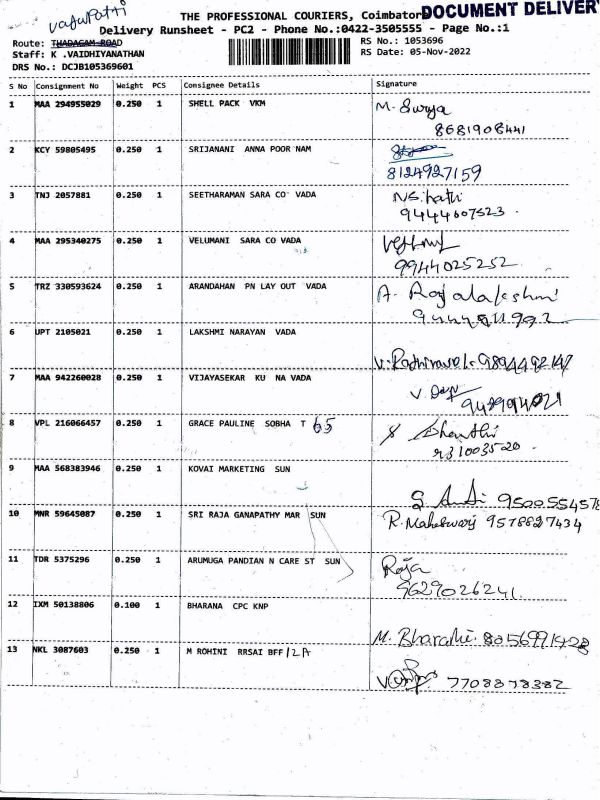 vajuPatti
THE PROFESSIONAL COURIERS, Coimbator
DOCUMENT DELIVERY
Delivery Runsheet - PC2 - Phone No.:0422-3505555 - Page No.:1
Route: THADAGAM ROAD
RS No.: 1053696
Staff: K .VAIDHIYANATHAN
RS Date: 05-Nov-2022
DRS No.: DCJB105369601
S No Consignment No Weight PCS Consignee Details Signature
1 MAA 294955029 0.250 1 SHELL PACK VKM M. Surya
8681908441
2 KCY 59805495 0.250 1 SRIJANANI ANNA POOR NAM
8124927159
3 TNJ 2057881 0.250 1 SEETHARAMAN SARA CO VADA
9444607523
4 MAA 295340275 0.250 1 VELUMANI SARA CO VADA
9944025252
5 TRZ 330593624 0.250 1 ARANDAHAN PN LAY OUT VADA A. Rajalakshmi
6 UPT 2105021 0.250 1 LAKSHMI NARAYAN VADA
7 MAA 942260028 0.250 1 VIJAYASEKAR KU NA VADA
8 VPL 216066457 0.250 1 GRACE PAULINE SOBHA T 65
9 MAA 568383946 0.250 1 KOVAI MARKETING SUN
9500554578
10 MNR 59645087 0.250 1 SRI RAJA GANAPATHY MAR SUN R. Maheswari 9578827434
11 TDR 5375296 0.250 1 ARUMUGA PANDIAN N CARE ST SUN Roja
9629026241
12 IXM 50138806 0.100 1 BHARANA CPC KNP
M. Bharathi
13 NKL 3087603 0.250 1 M ROHINI RRSAI BFF/2A
7708378382